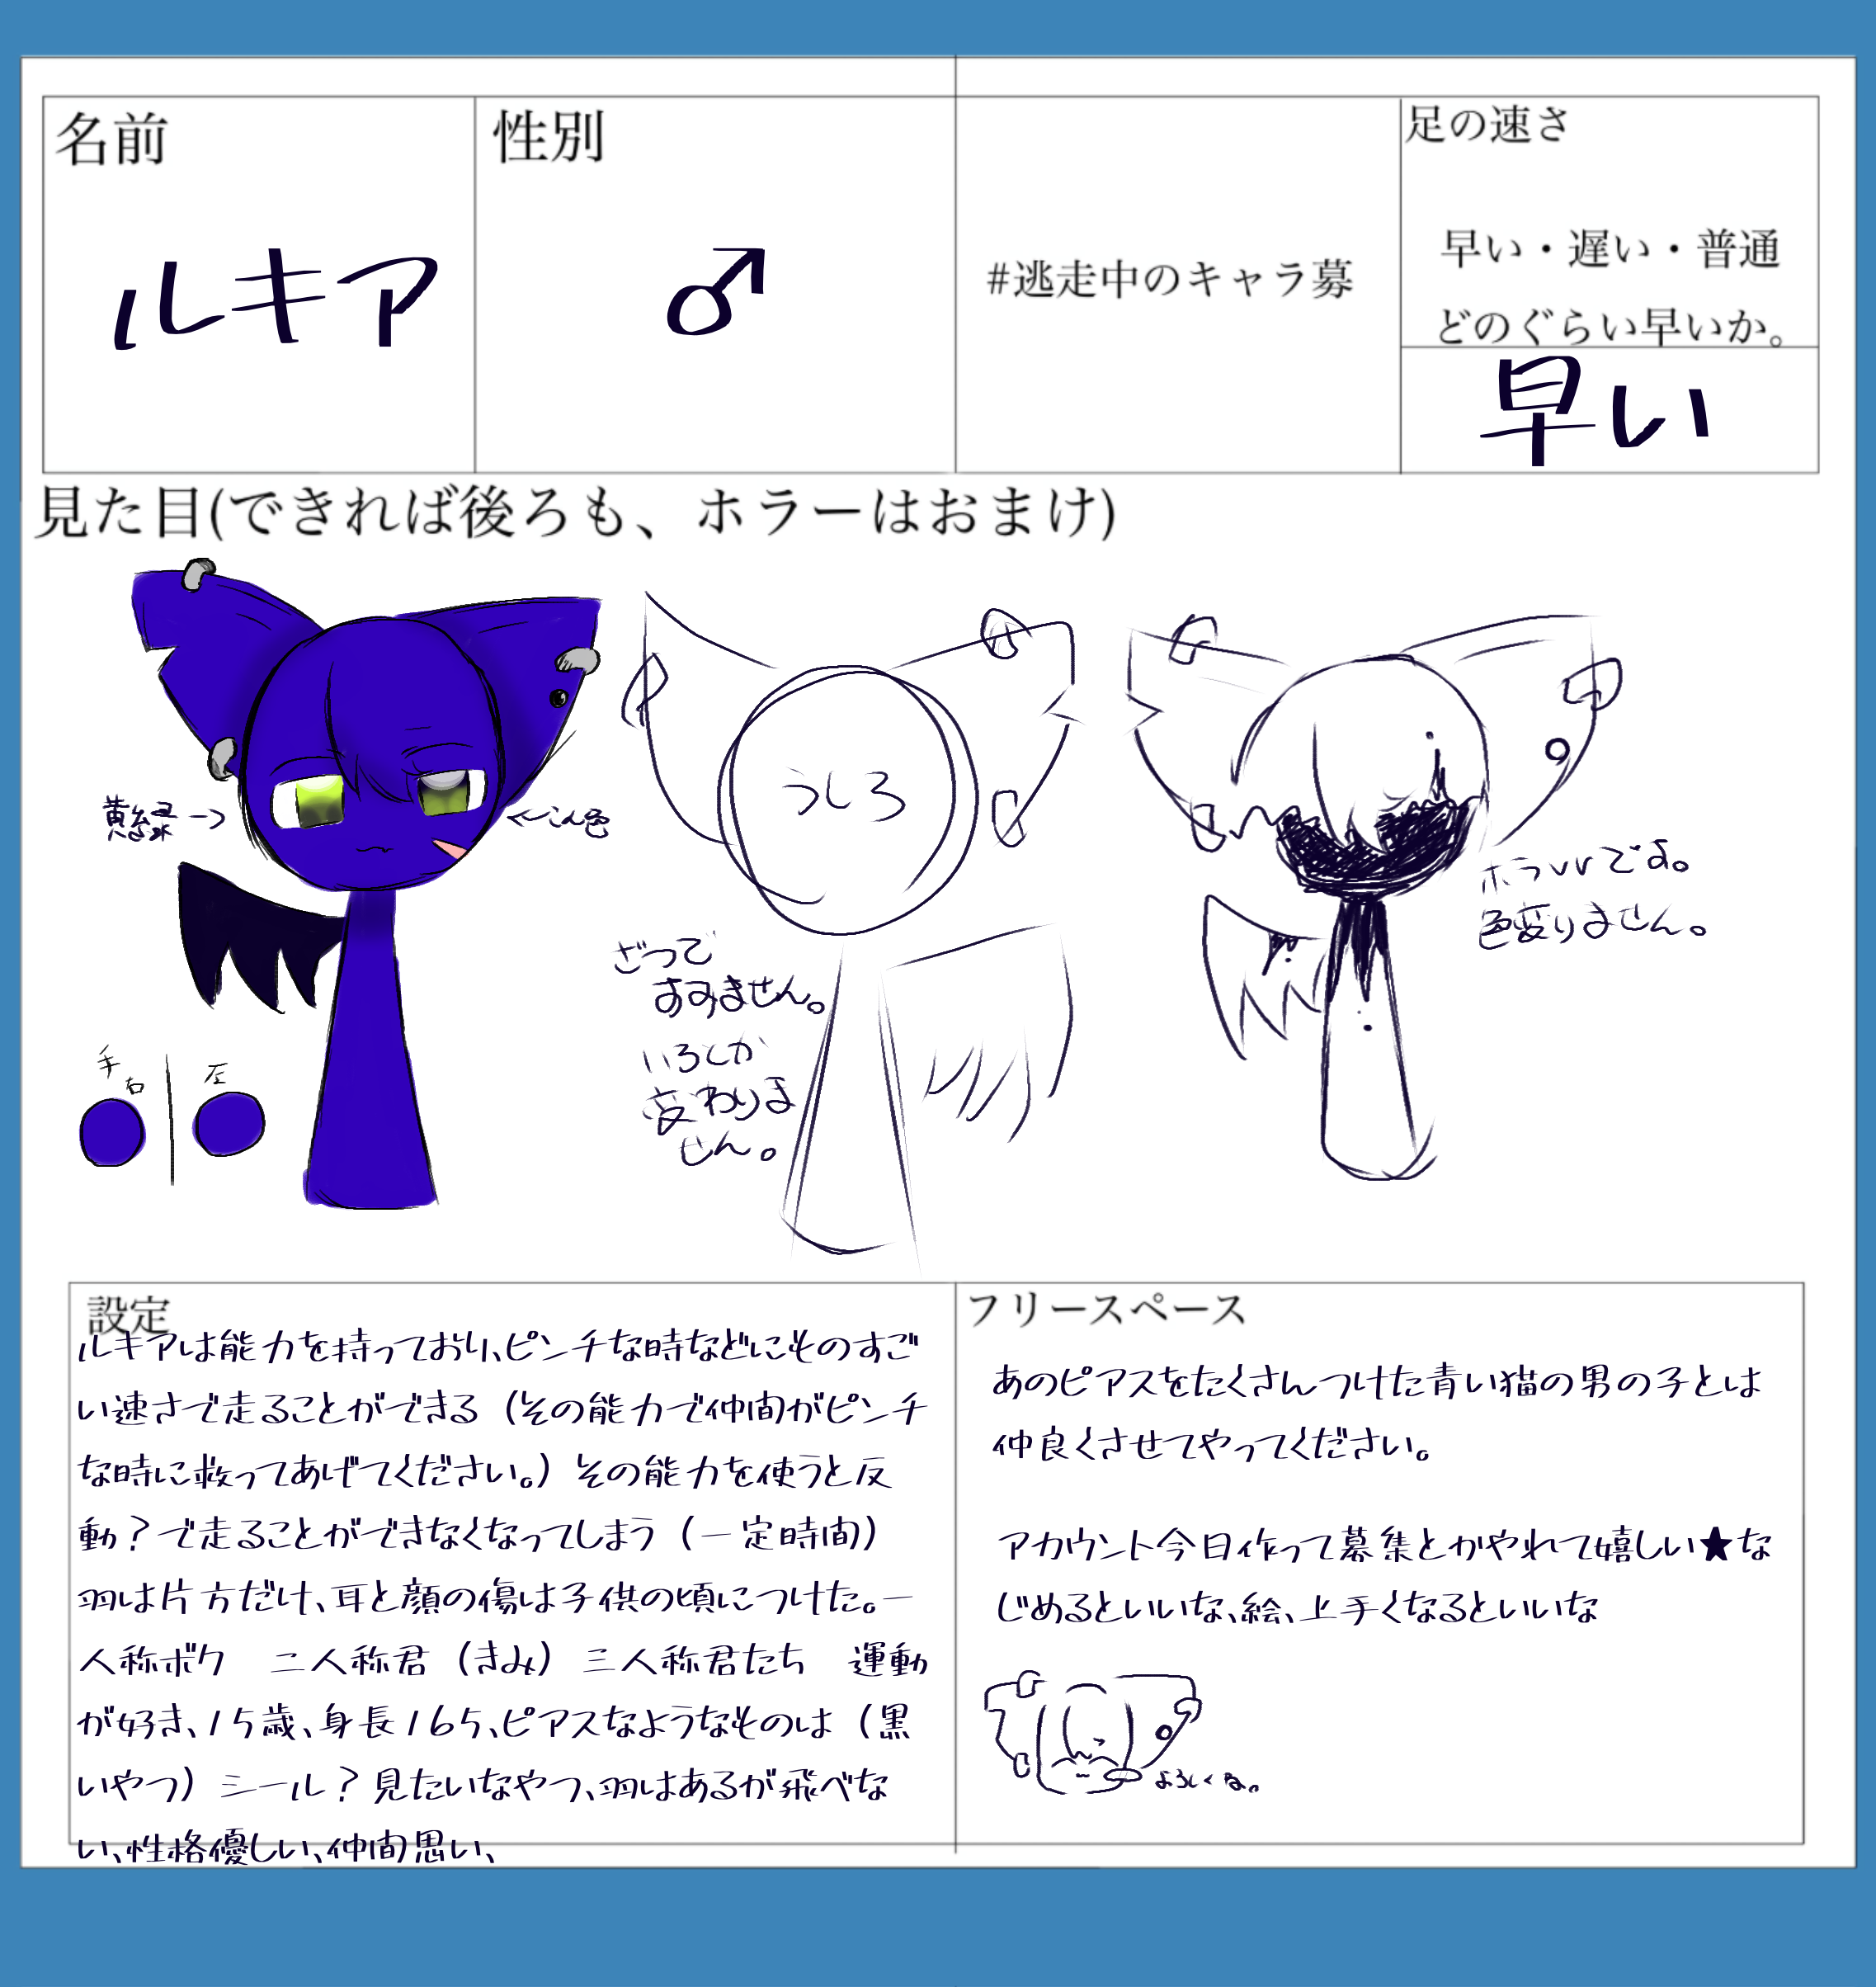 名前
ルキア
性別
♂
#逃走中のキャラ募
足の速さ
早い・遅い・普通
どのぐらい早いか。
早い
見た目(できれば後ろも、ホラーはおまけ)
黄緑→
←こん色
手
右
左
うしろ
ざつで
すみません。
いろとか
変わりま
せん。
ホラvrです。
色変りません。
設定
ルキアは能力を持っており、ピンチな時などにものすご
い速さで走ることができる（その能力で仲間がピンチ
な時に救ってあげてください。）その能力を使うと反
動？で走ることができなくなってしまう（一定時間）
羽は片方だけ、耳と顔の傷は子供の頃につけた。一
人称ボク　二人称君（きみ）三人称君たち　運動
が好き、15歳、身長165、ピアスなようなものは（黒
いやつ）シール？見たいなやつ、羽はあるが飛べな
い、性格優しい、仲間思い、
フリースペース
あのピアスをたくさんつけた青い猫の男の子とは
仲良くさせてやってください。
アカウント今日作って募集とかやれて嬉しい★な
じめるといいな、絵、上手くなるといいな
よろしくね。